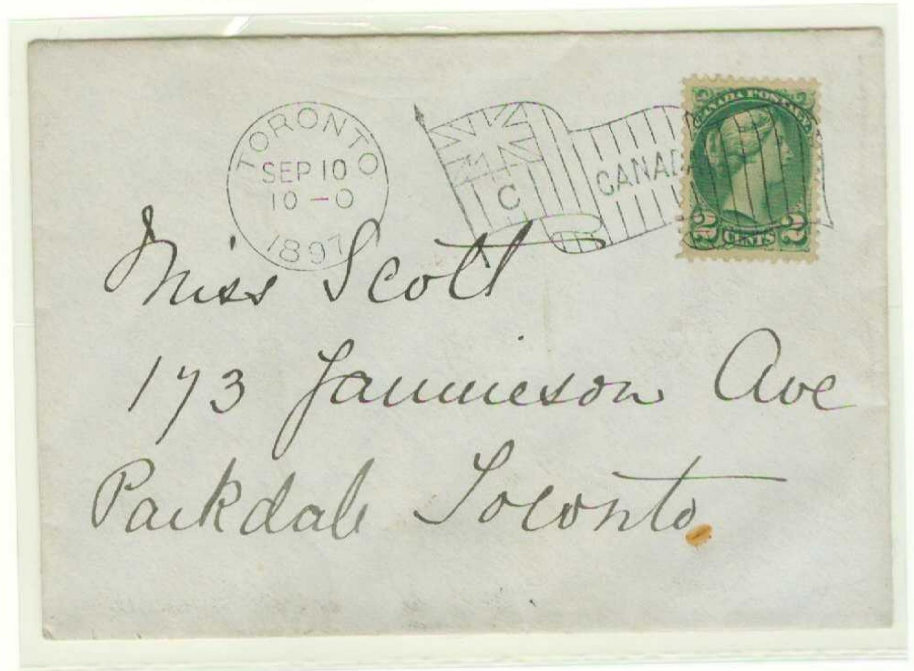 TORONTO
SEP 10
10-0
1897
C
CANAD
CANADA POSTAGE
2 CENTS 2
Miss Scott
173 Jammieson Ave
Parkdale Toronto